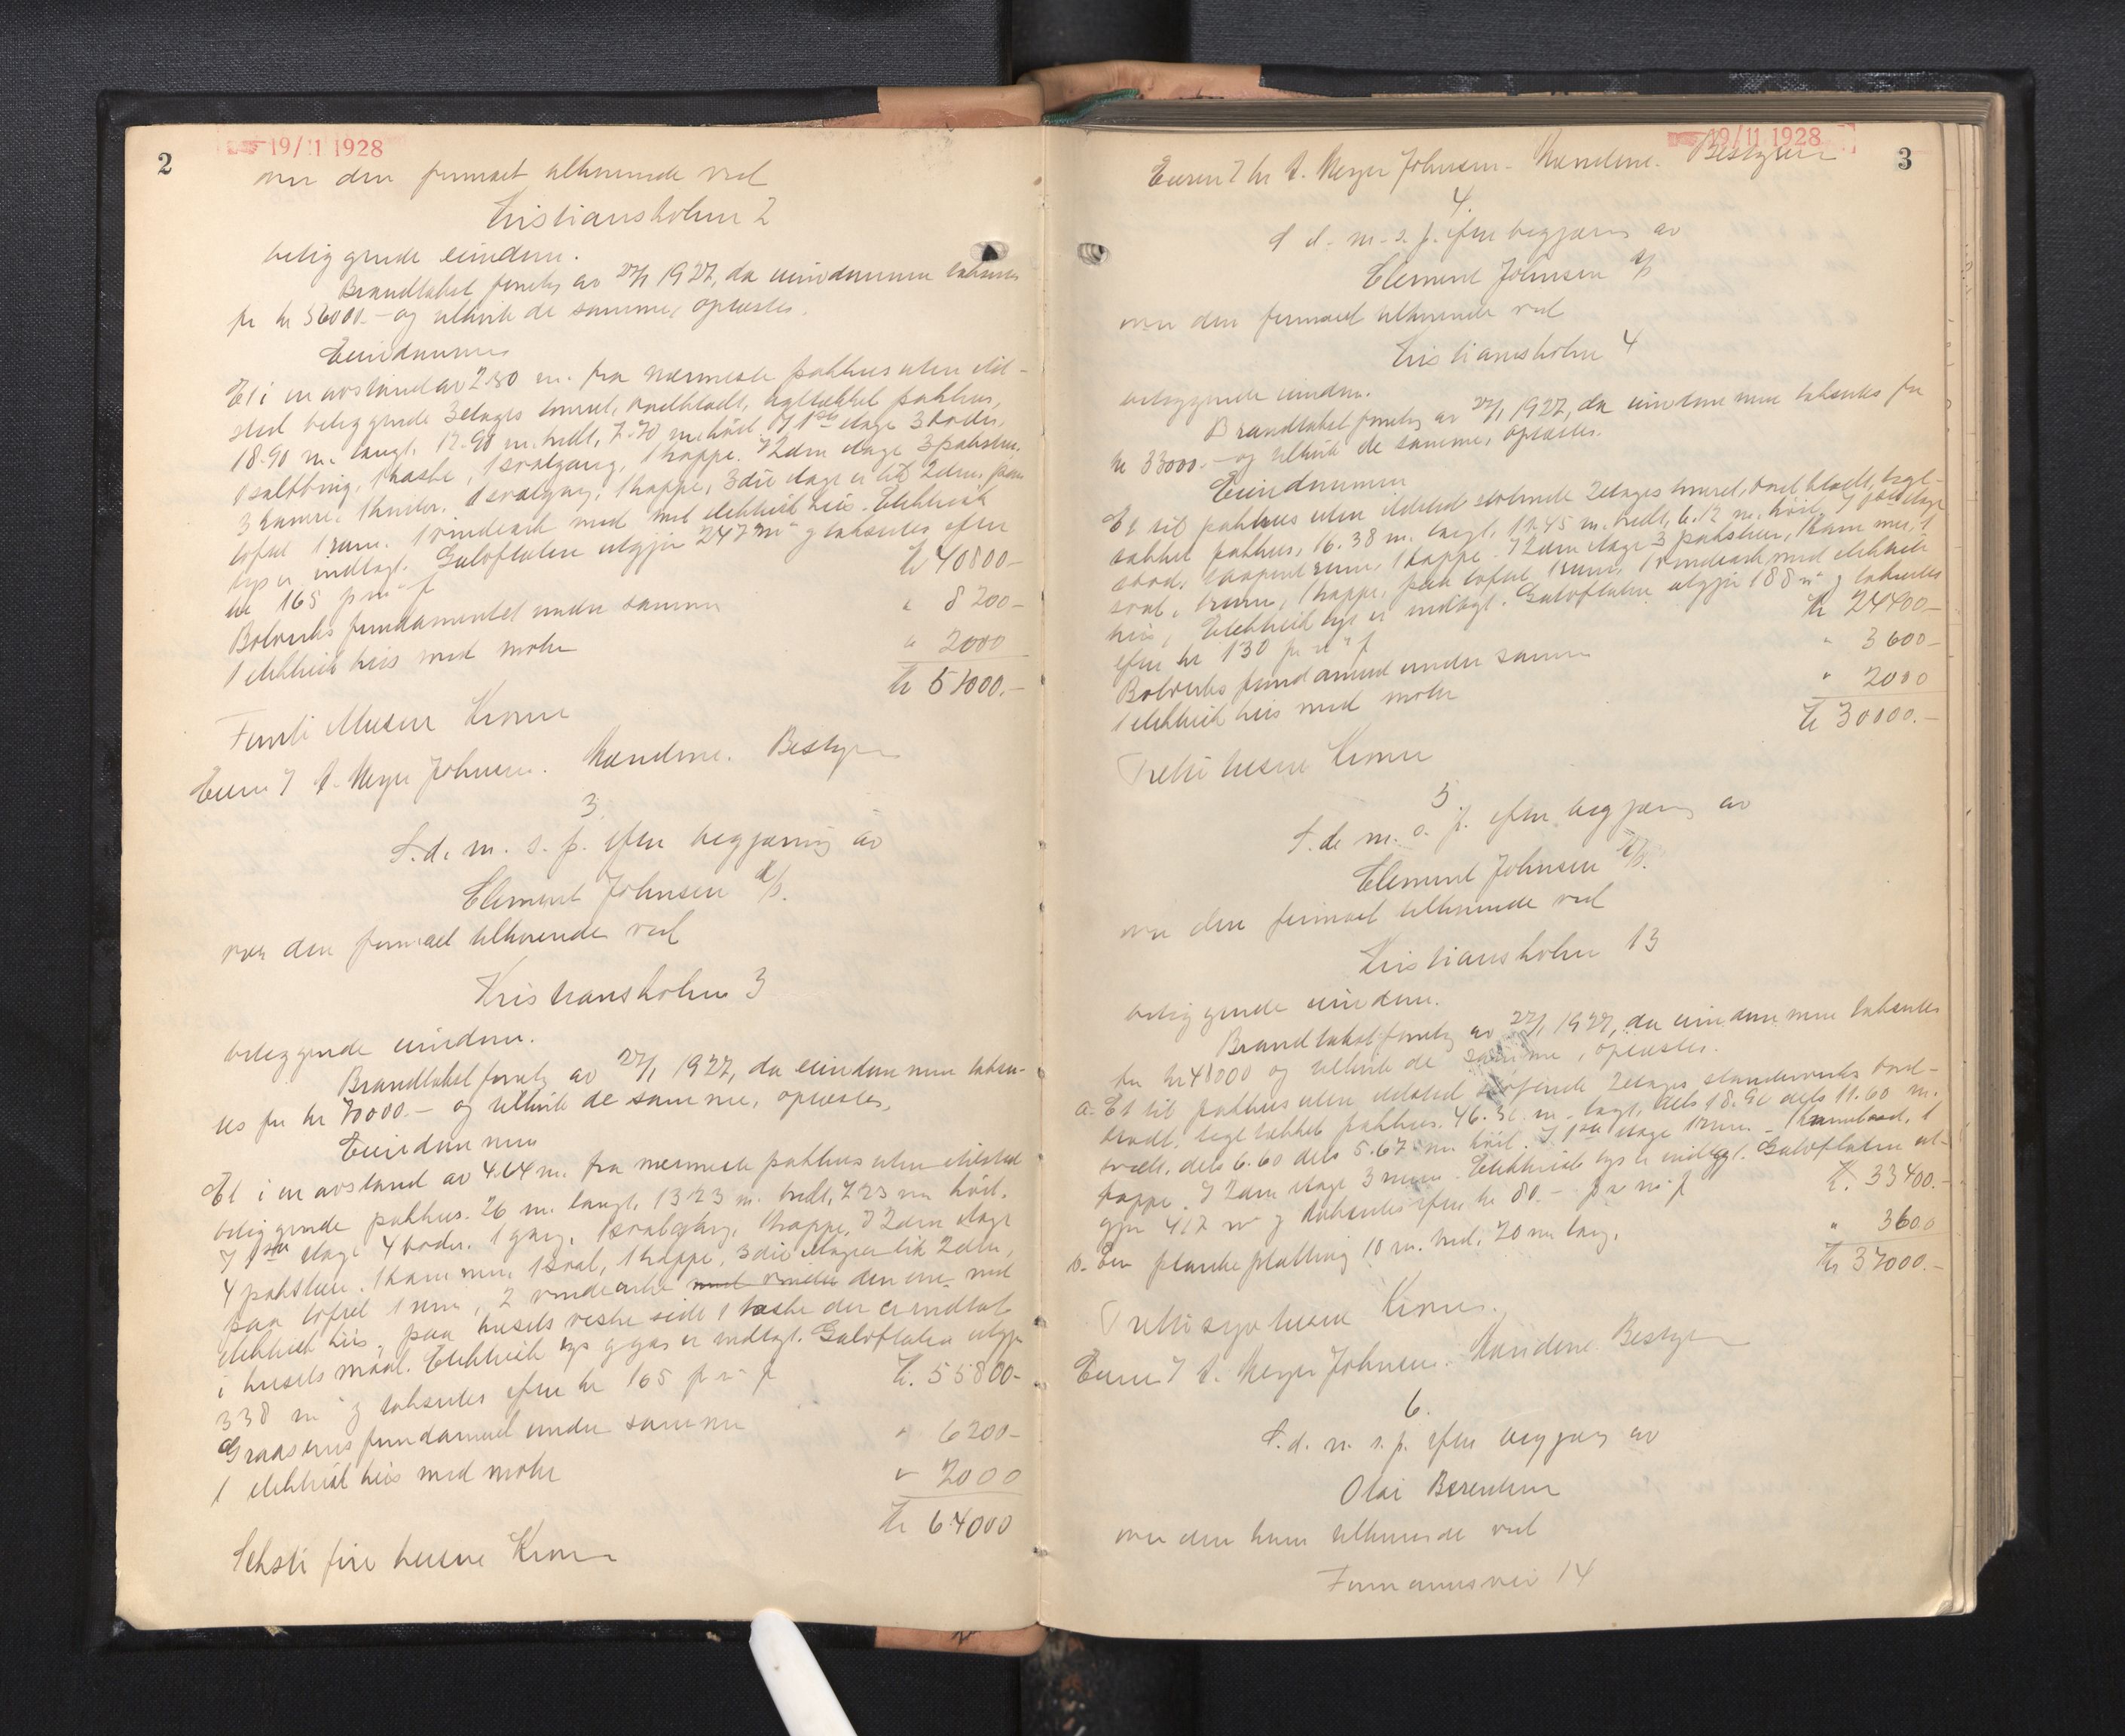 2
19/11 1928
over den firmaet tilhørende ved
Kristiansholm 2
beliggende eiendom.
Brandtakst foretag av 27/1 1927, da eiendommen takseres
for kr 56000.- og tilhørte de samme, oplæstes.
Eiendommen
Et i en avstand av 2.80 m. fra nærmeste pakhus uten ild-
sted beliggende 3 etages tømret, bordklædt, tagtækket pakhus,
18.90 m. langt, 12.90 m. bredt, 7.70 m. høit. I 1ste etage 3 boder,
1 svalgang, 1 trappe. I 2den etage 3 pakstuer,
3 kamre, 1 svalgang, 1 trappe, 3die etage er lik 2den, paa
loftet 1 rum. 1 vindeark med elektrisk heis. Elektrisk
lys er indlagt. Gulvflaten utgjør 247 m² og takseres efter
kr 165 pr m² f kr 40800-
Bolverks fundamentet under samme " 8200-
1 elektrisk heis med motor " 2000
kr 51000.-
Femti tusen Kroner
Eieren v/ A. Meyer Johnsen. Mændene. Bestyrer
3.
S. d. m. s. p. efter begjæring av
Clement Johnsen A/S.
over den firmaet tilhørende ved
Kristiansholm 3
beliggende eiendom.
Brandtakst foretag av 27/1 1927, da eiendommen takse-
res for kr 70000.- og tilhørte de samme, oplæstes.
Eiendommen
Et i en avstand av 4.64 m. fra nærmeste pakhus uten ildsted
beliggende pakhus. 26 m. langt, 13.23 m. bredt, 7.23 m høit.
I 1ste etage 4 boder. 1 gang, 1 svalgang, 1 trappe, I 2den etage
4 pakstuer. 1 kammer, 1 sval, 1 trappe, 3die etage er lik 2den,
paa loftet 1 rum, 2 vindearke med vinder den ene med
elektrisk heis, paa husets vestre side 1 kasse der er indtat
i husets maal. Elektrisk lys og gas er indlagt. Gulvflaten utgjør
338 m² og takseres efter kr 165 pr m² f kr. 55800-
Graastens fundament under samme " 6200-
1 elektrisk heis med motor " 2000
kr 64000
Seksti fire tusen Kroner
3
19/11 1928
Eieren v/ hr A. Meyer Johnsen. Mændene. Bestyrer
4.
S. d. m. s. p. efter begjæring av
Clement Johnsen A/S
over den firmaet tilhørende ved
Kristiansholm 4
beliggende eiendom.
Brandtakst foretag av 27/1 1927, da eiendommen takseres for
kr 33000.- og tilhørte de samme, oplæstes.
Eiendommen
Et til pakhus uten ildsted støtende 2 etages tømret, bordklædt, tagt-
tækket pakhus, 16.38 m. langt, 11.45 m. bredt, 6.12 m. høit, I 1ste etage
1 trappe. I 2den etage 3 pakstuer, 1 kammer, 1
sval, 1 rum, 1 trappe, paa loftet 1 rum, 1 vindeark med elektrisk
heis, Elektrisk lys er indlagt. Gulvflaten utgjør 188 m² og takseres
efter kr 130 pr m² f kr 24400-
Bolverks fundament under samme " 3600-
1 elektrisk heis med motor " 2000
kr 30000.-
Tretti tusen Kroner
5.
S. d. m. s. p. efter begjæring av
Clement Johnsen A/S.
over den firmaet tilhørende ved
Kristiansholm 13
beliggende eiendom.
Brandtakst foretag av 27/1 1927, da eiendommen takseres
for kr 48000 og tilhørte de samme, oplæstes.
a. Et til pakhus uten ildsted støtende 2 etages standverks bord-
klædt, tegltækket pakhus. 46.36 m. langt, dels 18.90 dels 11.60 m.
bredt, dels 6.60 dels 5.67 m høit. I 1ste etage 1 rum, 1
trappe. I 2den etage 3 rum. Elektrisk lys er indlagt. Gulvflaten ut-
gjør 417 m² og takseres efter kr 80.- pr m² f kr. 33400.-
b. En planke platting 10 m. bred, 20 m lang. " 3600
kr 37000.-
Trettisyv tusen Kroner.
Eieren v/ A. Meyer Johnsen. Mændene. Bestyrer
6.
S. d. m. s. p. efter begjæring av
Olai Berentsen
over den ham tilhørende ved
Formannsvei 14